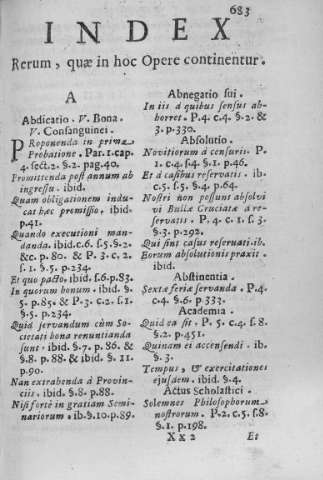 683
INDEX
Rerum, quæ in hoc Opere continentur.
A
Abdicatio. V. Bona.
V. Consanguinei.
PRoponenda in prima
Probatione. Par. 1. cap.
4. sect. 2. §. 2. pag. 40.
Promittenda post annum ab
ingressu. ibid.
Quam obligationem indu-
cat hæc promissio. ibid.
p. 41.
Quando executioni man-
danda. ibid. c. 6. s. 5. §. 2.
&c. p. 80. & P. 3. c. 2.
s. 1. §. 5. p. 234.
Et quo pacto. ibid. s. 6. p. 83.
In quorum bonum. ibid. §.
5. p. 85. & P. 3. c. 2. s. 1
§. 5. p. 234.
Quid servandum cùm So-
cietati bona renuntianda
sunt. ibid. §. 7. p. 86. &
§. 8. p. 88. & ibid. §. 11
p. 90.
Nan extrahenda à Provin-
ciis. ibid. §. 8. p. 88.
Nisi fortè in gratiam Semi-
nariorum. ib. §. 10. p. 89.
Abnegatio sui.
In iis à quibus sensus ab-
horret. P. 4. c. 4. §. 2. &
3. p. 330.
Absolutio.
Novitiorum à censuris. P.
1. c. 4. s. 4. §. 1. p. 46.
Et à casibus reservatis. ib.
c. 5. s. 5. §. 4. p. 64.
Nostri non possunt absolvi
vi Bullæ Cruciatæ à re-
servatis. P. 4. c. 1. s. 3.
§. 3. p. 292.
Qui sint casus reservati. ib.
Eorum absolutionis praxis.
ibid.
Abstinentia.
Sextæ feriæ servanda. P. 4.
c. 4. §. 6. p. 333.
Academia.
Quid ea sit. P. 5. c. 4. s. 8.
§. 2. p. 451.
Quinam ei accensendi. ib.
§. 3.
Tempus, & exercitationes
ejusdem. ibid. §. 4.
Actus Scholastici.
Solemnes Philosophorum
nostrorum. P. 2. c. 5. s. 8.
§. 1. p. 198.
Xx 2
Et